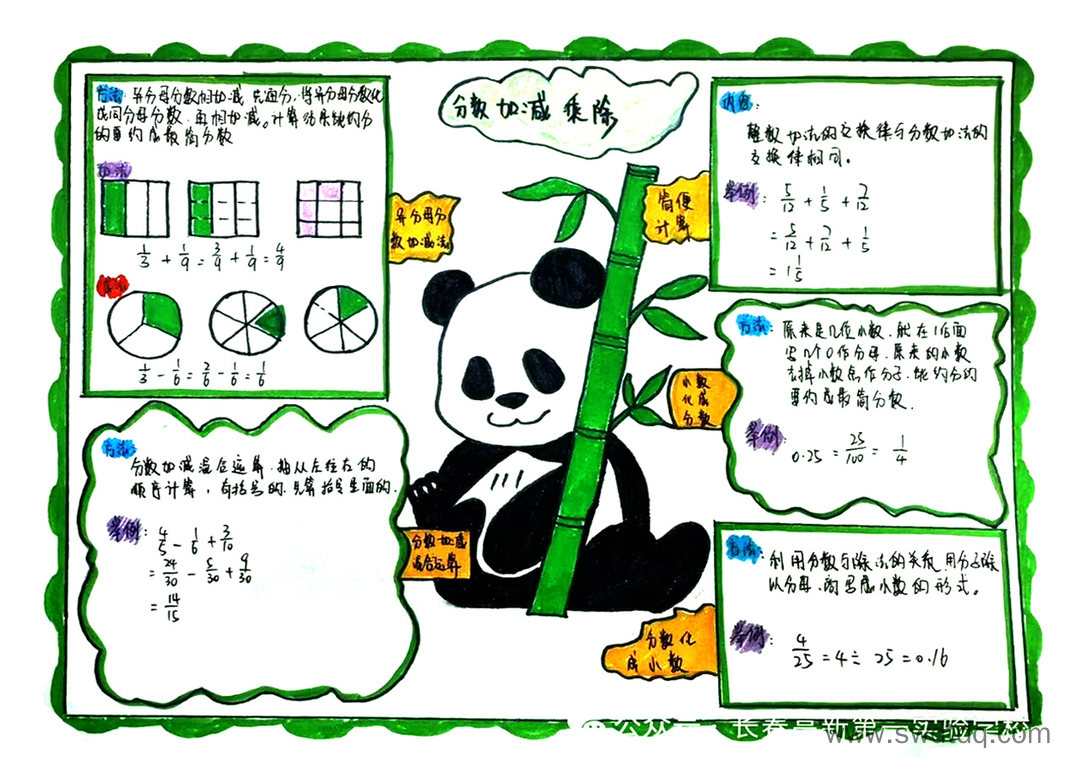 分数加减乘除
方法: 异分母分数相加减 先通分,将异分母分数化
成同分母分数,再相加减。计算结果能约分
的要约成最简分数
加法
1/3 + 1/9 = 3/9 + 1/9 = 4/9
减法
1/3 - 1/6 = 2/6 - 1/6 = 1/6
异分母分
数加减法
方法:
分数加减混合运算,按从左往右的
顺序计算,有括号的,先算括号里面的.
举例:
4/5 - 1/6 + 3/10
= 24/30 - 5/30 + 9/30
= 14/15
分数加减
混合运算
简便
计算
内容:
整数加法的交换律与分数加法的
交换律相同。
举例: 5/12 + 1/5 + 7/12
= 5/12 + 7/12 + 1/5
= 1 1/5
小数
化成
分数
方法: 原来是几位小数,就在1后面
写几个0作分母,原来的小数
去掉小数点作分子,能约分的
要约成最简分数.
举例: 0.25 = 25/100 = 1/4
分数化
成小数
方法: 利用分数与除法的关系,用分子除
以分母,商写成小数的形式。
举例: 4/25 = 4÷25 = 0.16
公众号 · 长春高新第一实验学校